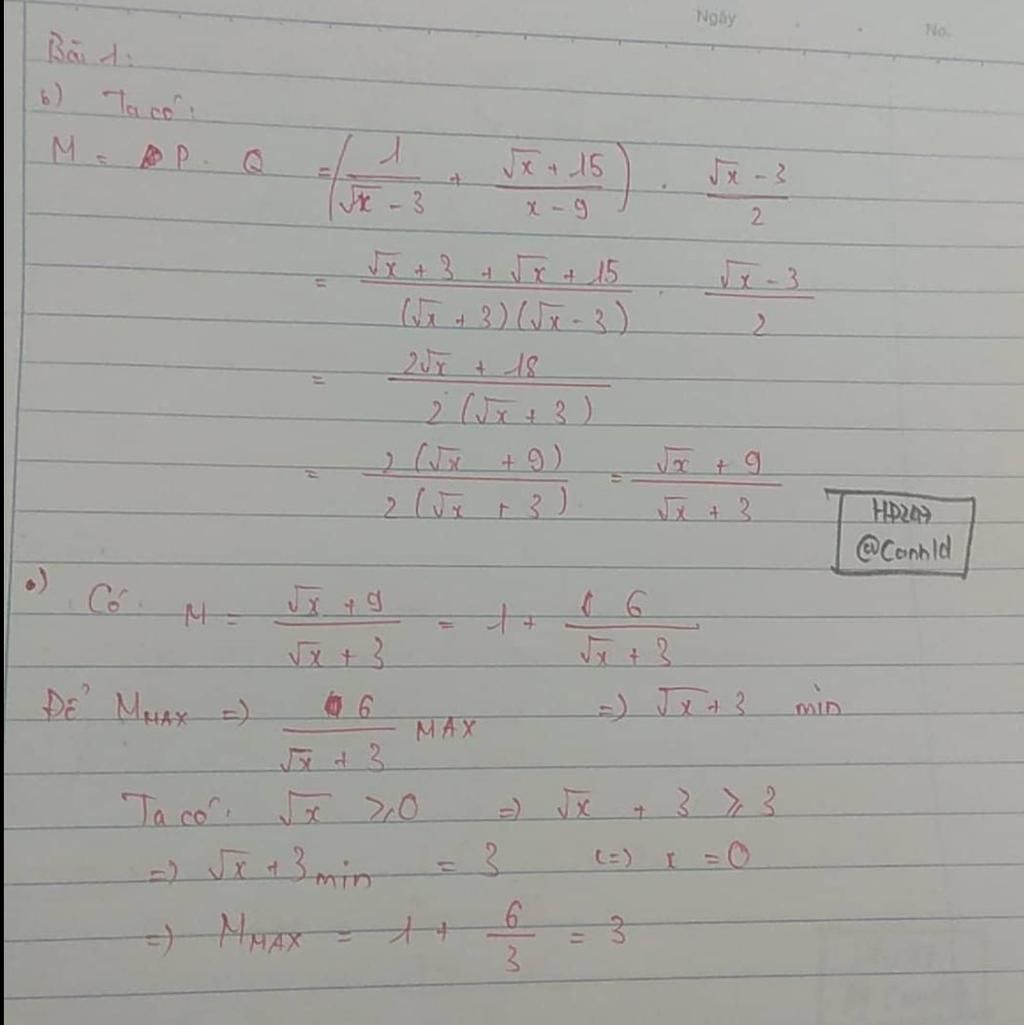 Ngày
No.
Bài 1:
b) Ta có:
M = P . Q = (1/(√x - 3) + (√x + 15)/(x - 9)) . (√x - 3)/2
= (√x + 3 + √x + 15)/((√x + 3)(√x - 3)) . (√x - 3)/2
= (2√x + 18)/(2(√x + 3))
= (2(√x + 9))/(2(√x + 3)) = (√x + 9)/(√x + 3)
@Canhld
•) Có M = (√x + 9)/(√x + 3) = 1 + 6/(√x + 3)
Để M MAX => 6/(√x + 3) MAX => √x + 3 min
Ta có: √x ⩾ 0 => √x + 3 ⩾ 3
=> √x + 3 min = 3 (=) x = 0
=> M MAX = 1 + 6/3 = 3